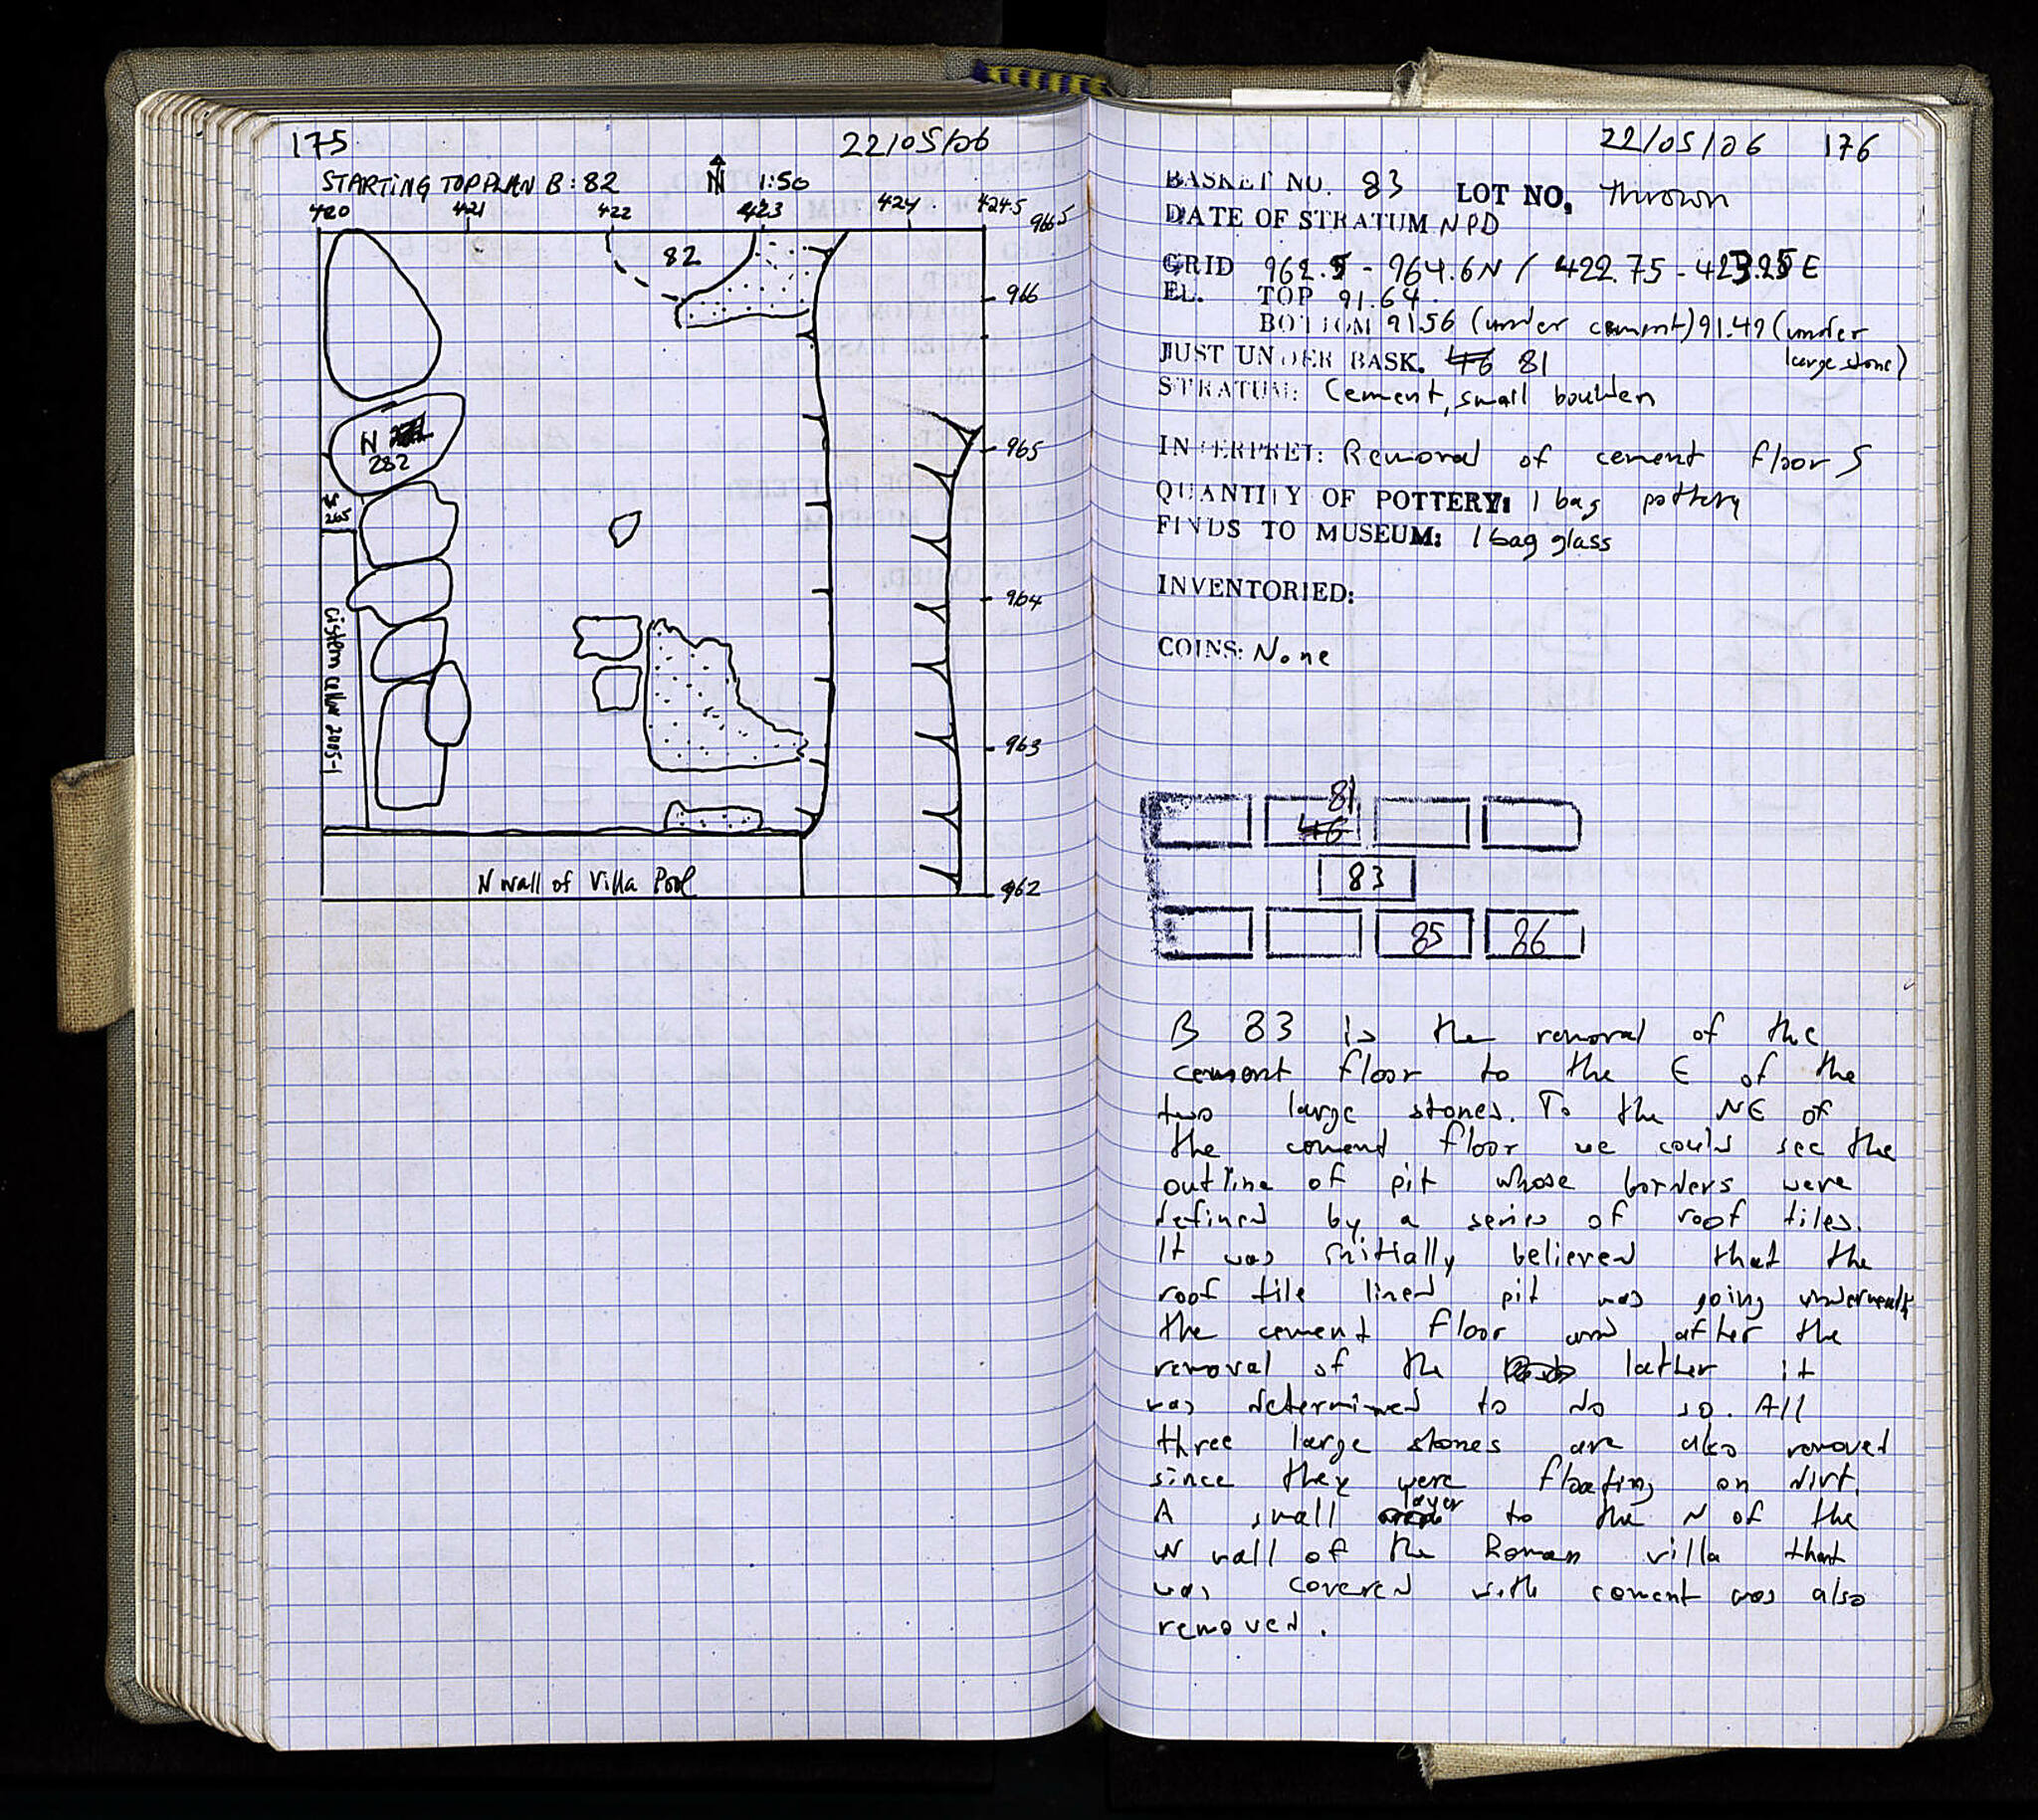 175
22/05/06
STARTING TOP PLAN B: 82
N 1:50
420 421 422 423 424 424.5
966.5
82
966
N
282
965
265
964
cistern cellar 2005-1
963
N wall of Villa Pool
962
22/05/06 176
BASKET NO. 83 LOT NO. Thrown
DATE OF STRATUM NPD
GRID 962.5 - 964.6N / 422.75 - 423.25 E
EL. TOP 91.64
BOTTOM 91.56 (under cement) 91.49 (under
large stone)
JUST UNDER BASK. 46 81
STRATUM: Cement, small boulders
INTERPRET: Removal of cement floor S
QUANTITY OF POTTERY: 1 bag pottery
FINDS TO MUSEUM: 1 bag glass
INVENTORIED:
COINS: None
81
46
83
85 86
B 83 is the removal of the
cement floor to the E of the
two large stones. To the NE of
the cement floor we could see the
outline of pit whose borders were
defined by a series of roof tiles.
It was initially believed that the
roof tile lined pit was going underneath
the cement floor and after the
removal of the lather it
was determined to do so. All
three large stones are also removed
since they were floating on dirt.
A small layer to the N of the
N wall of the Roman villa that
was covered with cement was also
removed.